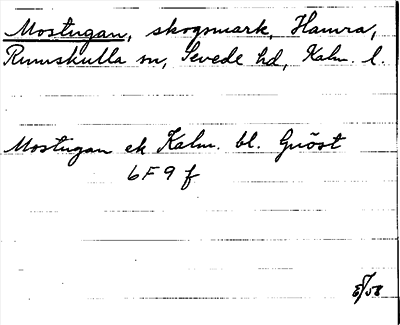 Mostugan, skogsmark, Hamra,
Rumskulla sn, Sevede hd, Kalm. l.
Mostugan ek Kalm. bl. Gnöst
6F9f
/58